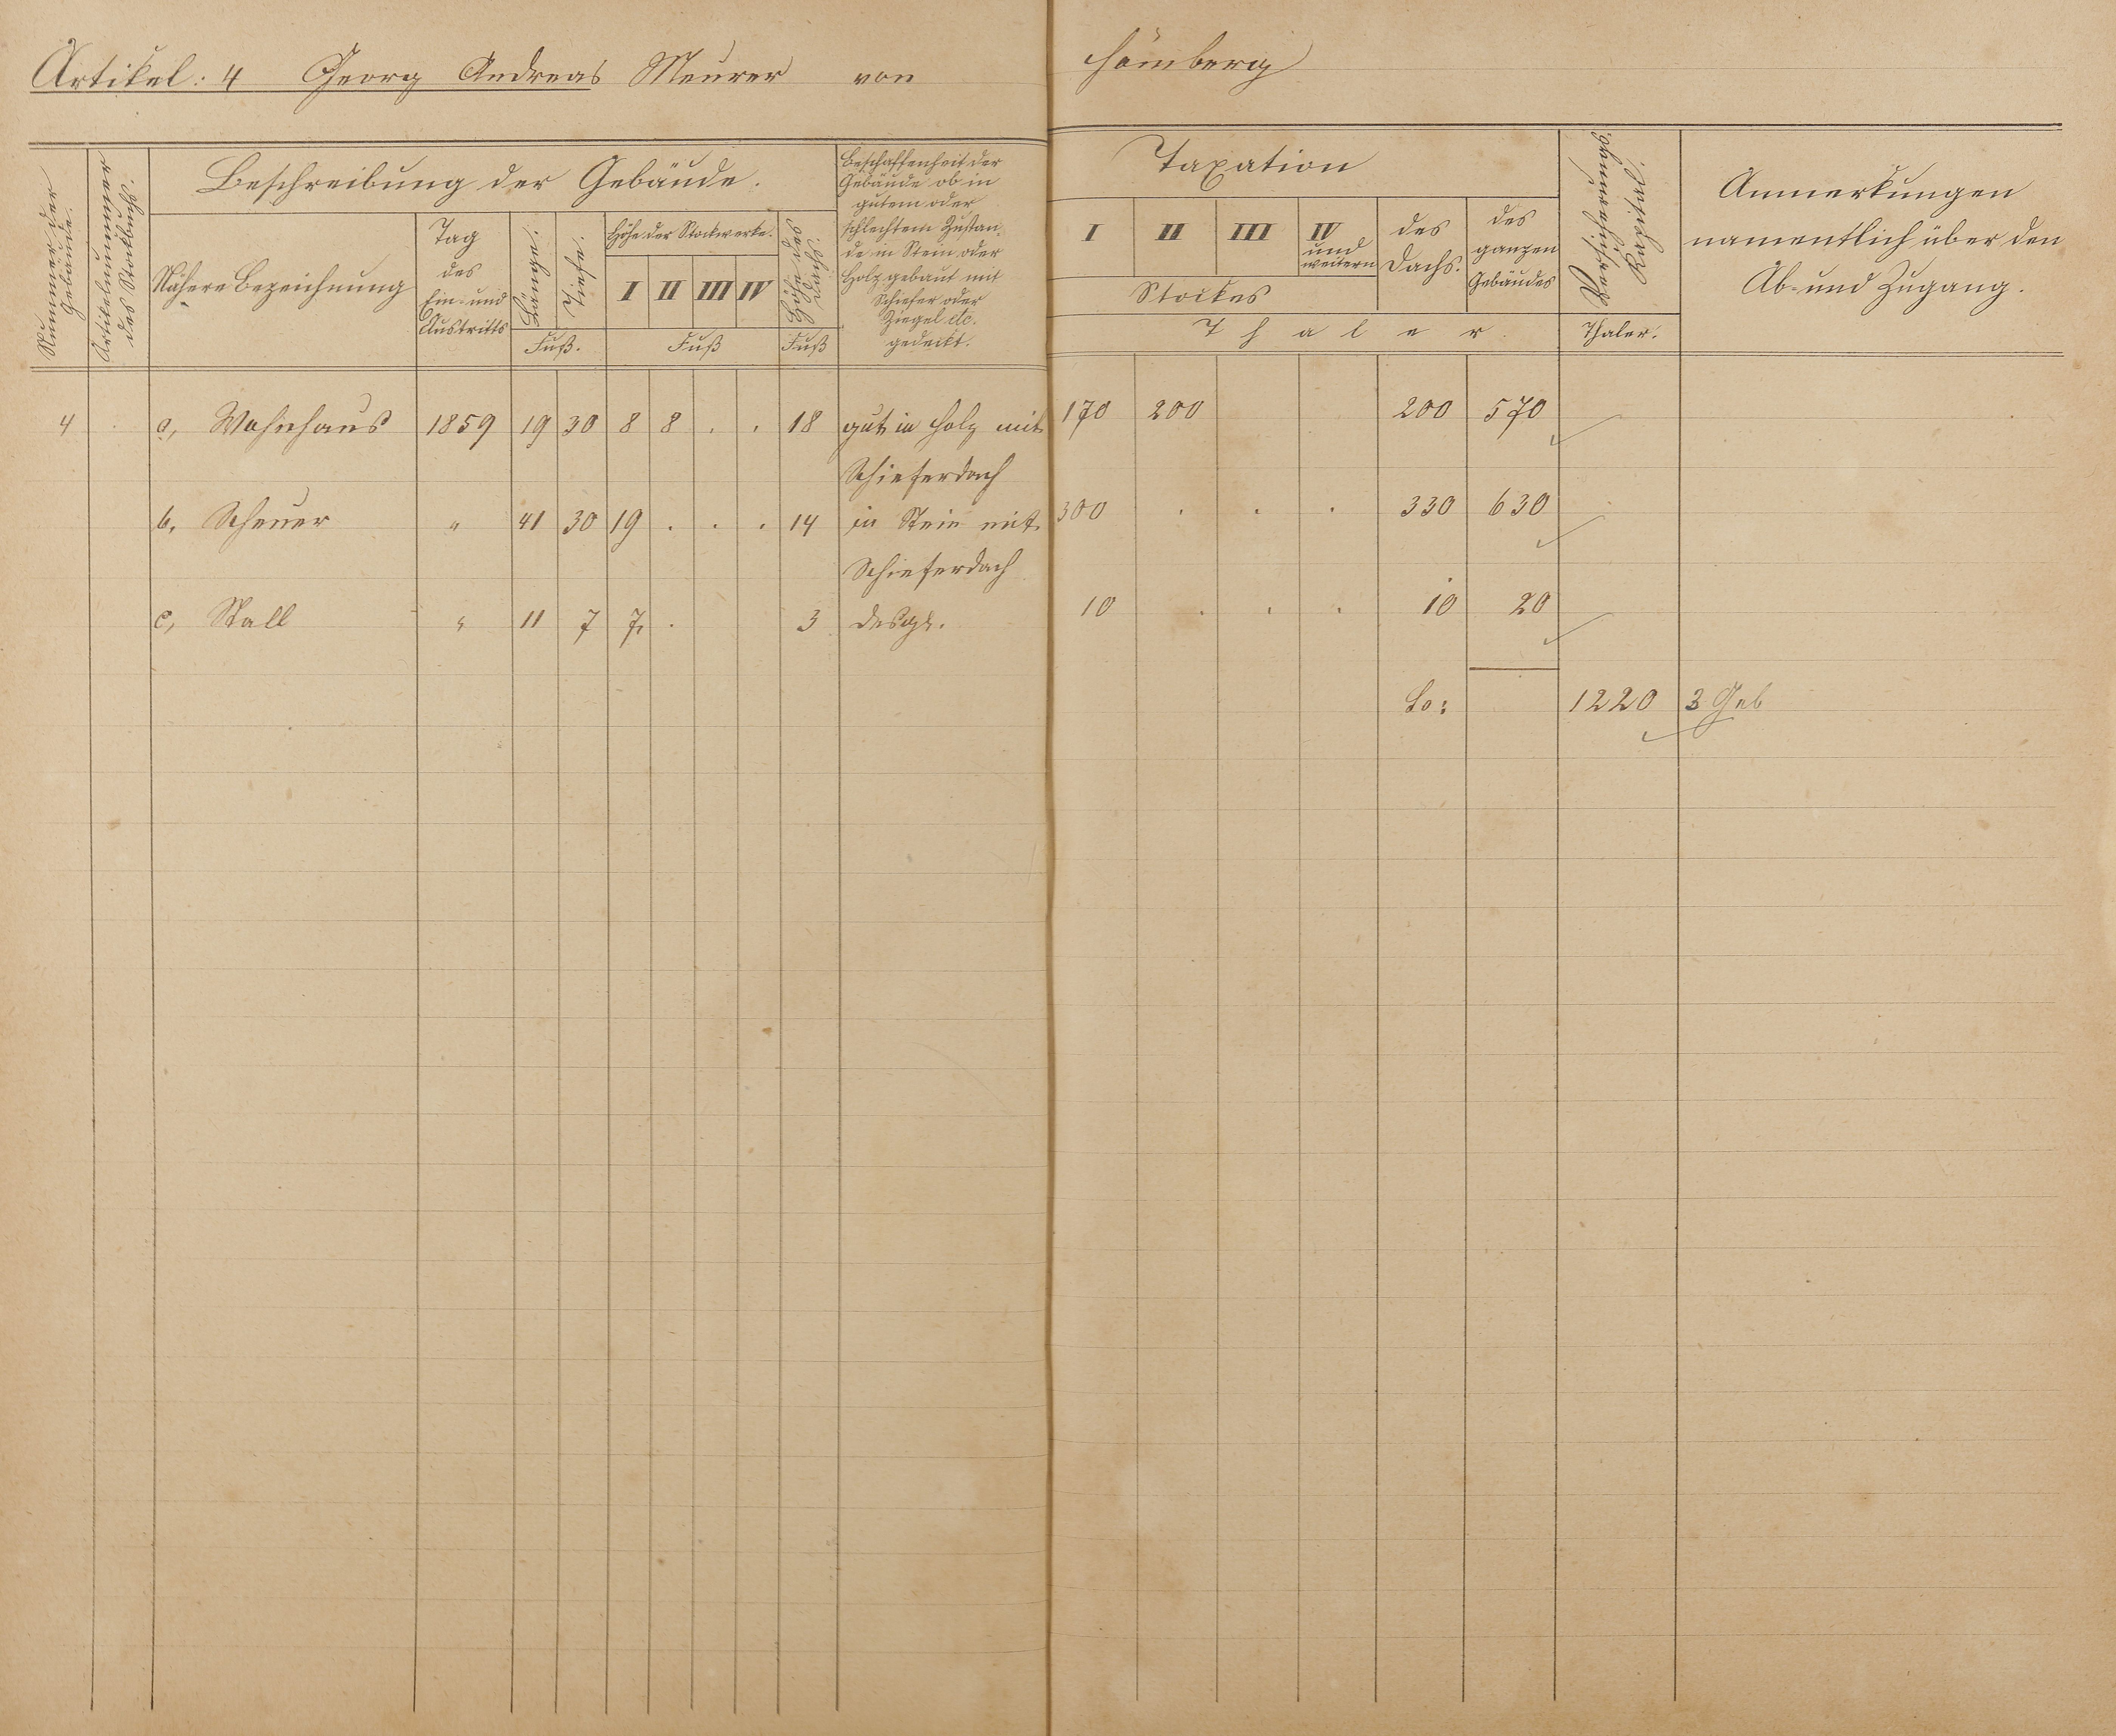 Artikel: 4 Georg Andreas Meurer von Hömberg
Nummer der Gebäude.
Artikelnummer des Stockbuchs.
Beschreibung der Gebäude.
Nähere Bezeichnung
Tag
des
Ein- und
Austritts
Länge.
Tiefe.
Fuß.
Höhe der Stockwerke.
I II III IV
Fuß
Höhe des Dachs.
Fuß
Beschaffenheit der
Gebäude ob in
gutem oder
schlechtem Zustan-
de in Stein oder
Holz gebaut mit
Schiefer oder
Ziegel etc.
gedeckt.
Taxation
I II III IV
und
weitern
Stockes
des
Dachs.
des
ganzen
Gebäudes
Thaler
Versicherungs
Kapital.
Thaler.
Anmerkungen
namentlich über den
Ab- und Zugang.
4 a, Wohnhaus 1859 19 30 8 8 . . 18 gut in Holz mit 170 200 200 570
Schieferdach
b, Scheuer " 41 30 19 . . . 14 in Stein mit 300 . . . 330 630
Schieferdach
c, Stall " 11 7 7 . 3 desgl. 10 . . . 10 20
1220 3 Geb